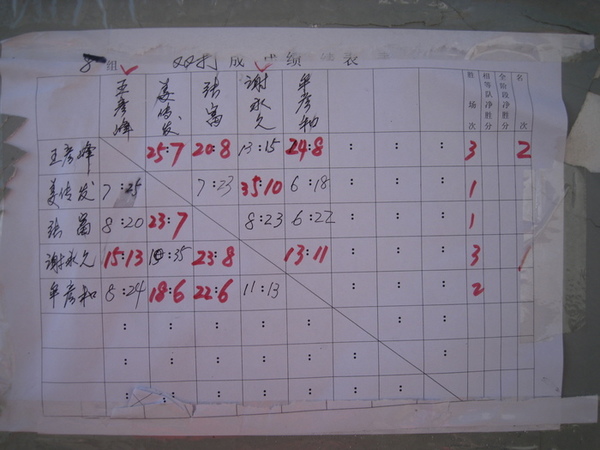 8 组 对打成绩表
王彦峰 姜传发 张富 谢永久 牟彦和 胜场次 相等队净胜分 全阶段净胜分 名次
王彦峰 25:7 20:8 13:15 24:8 3 2
姜传发 7:25 7:23 35:10 6:18 1
张富 8:20 23:7 8:23 6:22 1
谢永久 15:13 10:35 23:8 13:11 3 1
牟彦和 8:24 18:6 22:6 11:13 2